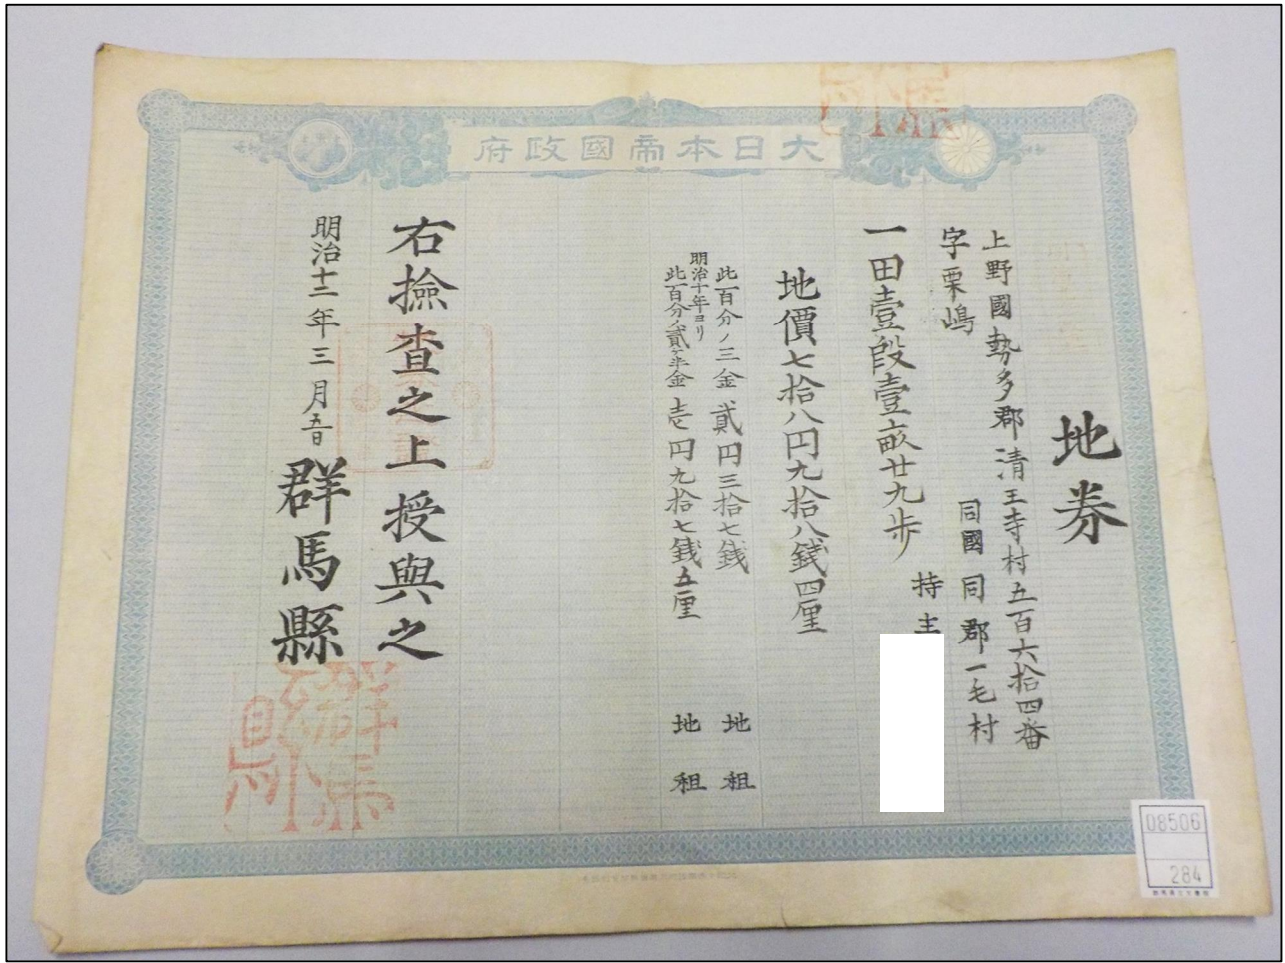 大日本帝國政府
地券
上野國勢多郡清王寺村五百六拾四番
字栗嶋
同國同郡一毛村
持主
一田壹段壹畝廿九歩
地價七拾八円九拾八銭四厘
此百分ノ三金貳円三拾七銭 地租
明治十年ヨリ
此百分ノ貳ヶ半金壱円九拾七銭五厘 地租
右撿査之上授與之
明治十二年三月五日 群馬縣
08506
284